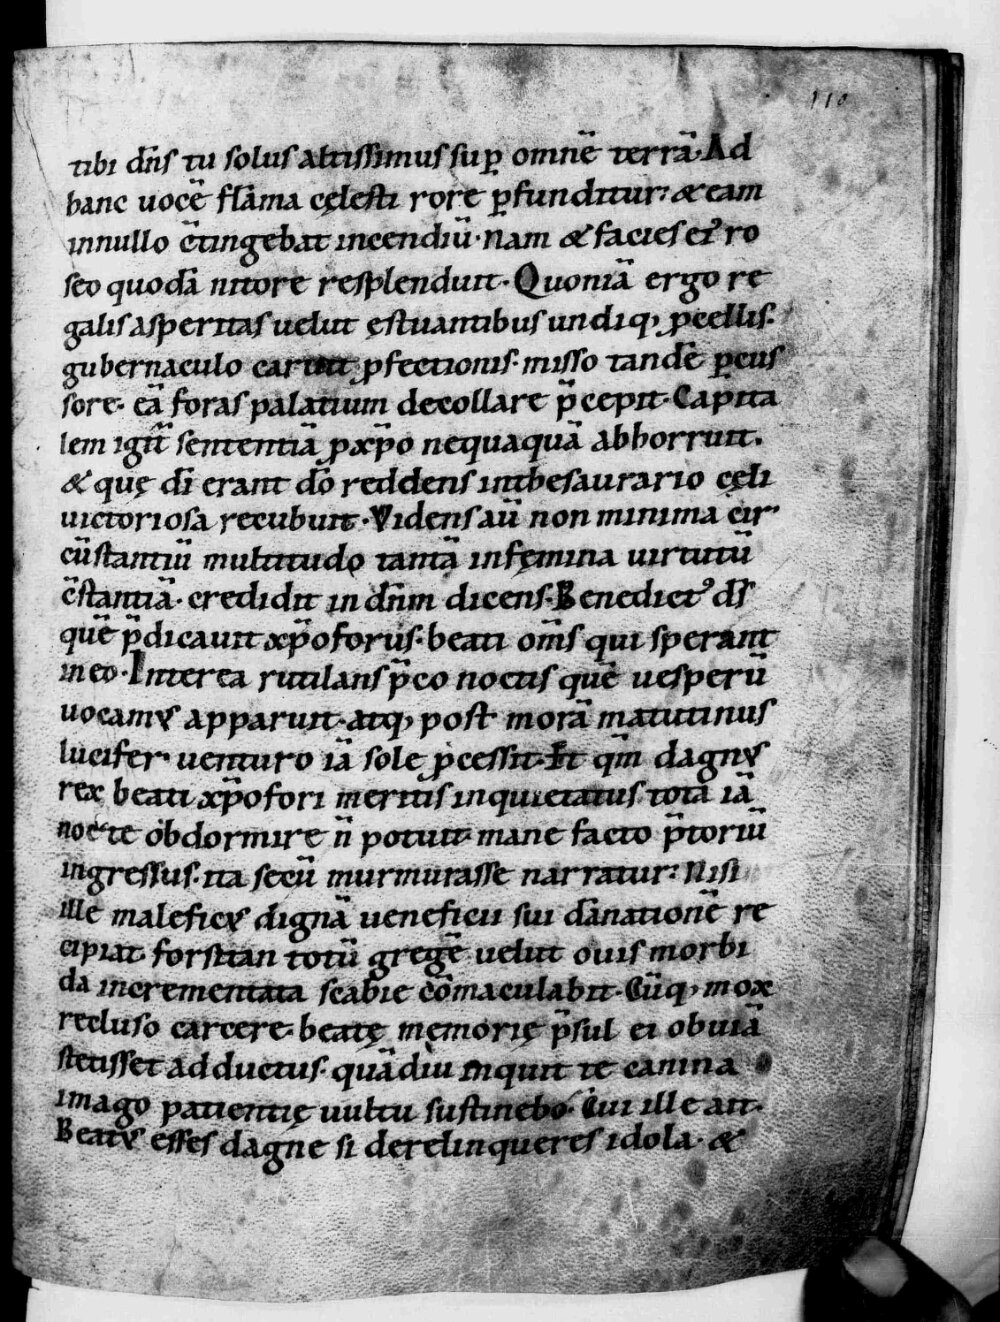 110
tibi dn̄s tu solus altissimus sup̱ omnē terrā· Ad
hanc uocē flāma cęlesti rore p̱funditur· & eam
innullo c̄tingebat incendiū· Nam & facies ei᷒ ro
seo quodā nitore resplenduit· Quoniā ergo re
galis asperitas uelut ęstuantibus undiq, ꝓcellis·
gubernaculo caruit ꝓfectionis· misso tandē p̱cus
sore· eā foras palatium decollare p̄cepit· Capita
lem igit̄ sententiā ꝓ xp̄o nequaquā abhorruit·
& quę dī erant dō reddens inthesaurario cęli
uictoriosa recubuit· Vidensaū non minima cir·
cūstantiū multitudo tantā infęmina uirtutū
c̄stantiā· credidit in dn̄m dicens· Benedict᷒ d̄s
quē p̄dicauit xp̄oforus· beati om̄s qui sperant
in eo· Interea rutilans p̄co noctis quē uesperū
uocamus apparuit· atq, post morā matutinus
lucifer· venturo iā sole ꝓcessit· Et qm̄ dagnus
rex beati xp̄ofori meritis inquietatus totā iā
nocte obdormire n̄ potuit· mane facto p̄toriū
ingressus· ita secū murmurasse narratur· Nisi
ille maleficus dignā ueneficii sui dānationē re
cipiat· forsitan totū gregē uelut ouis morbi
da incrementata scabie cōmaculabit· Cūq, mox
recluso carcere· beatę memorię p̄sul ei obuiā
stetisset adductus· quādiu inquit te canina
imago patientię uultu sustinebo· Cui ille ait·
Beatus esses dagne si derelinqueres idola· &